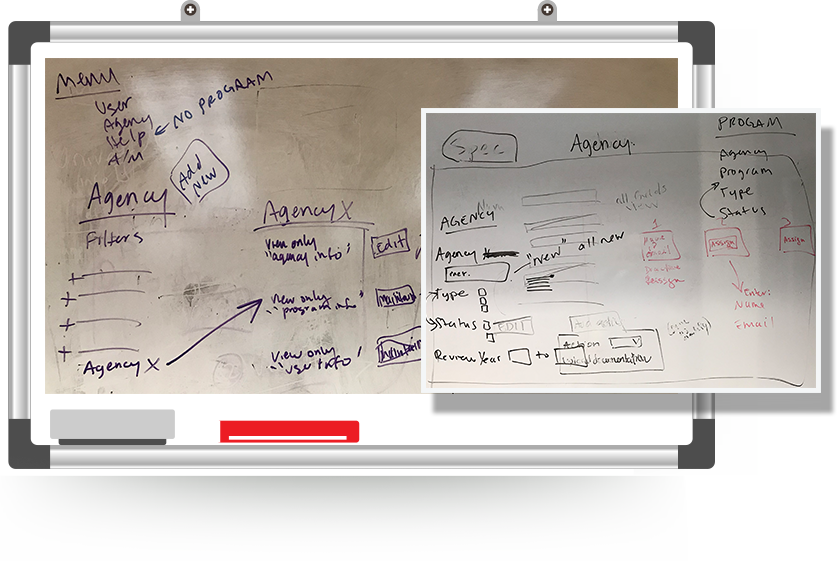 Menu
User
Agency
Help
NO PROGRAM
Add
New
Agency
Filters
Agency X
Agency X
View only
"agency info"
Edit
View only
"program info"
View only
"user info"
Spec
Agency
PROGRAM
Agency
Program
Type
Status
all fields
view
AGENCY
Agency
"New" all new
Type
Status
EDIT
Review Year
to
Action
Upload documentation
1
Assign
Assign
Enter:
Name
Email